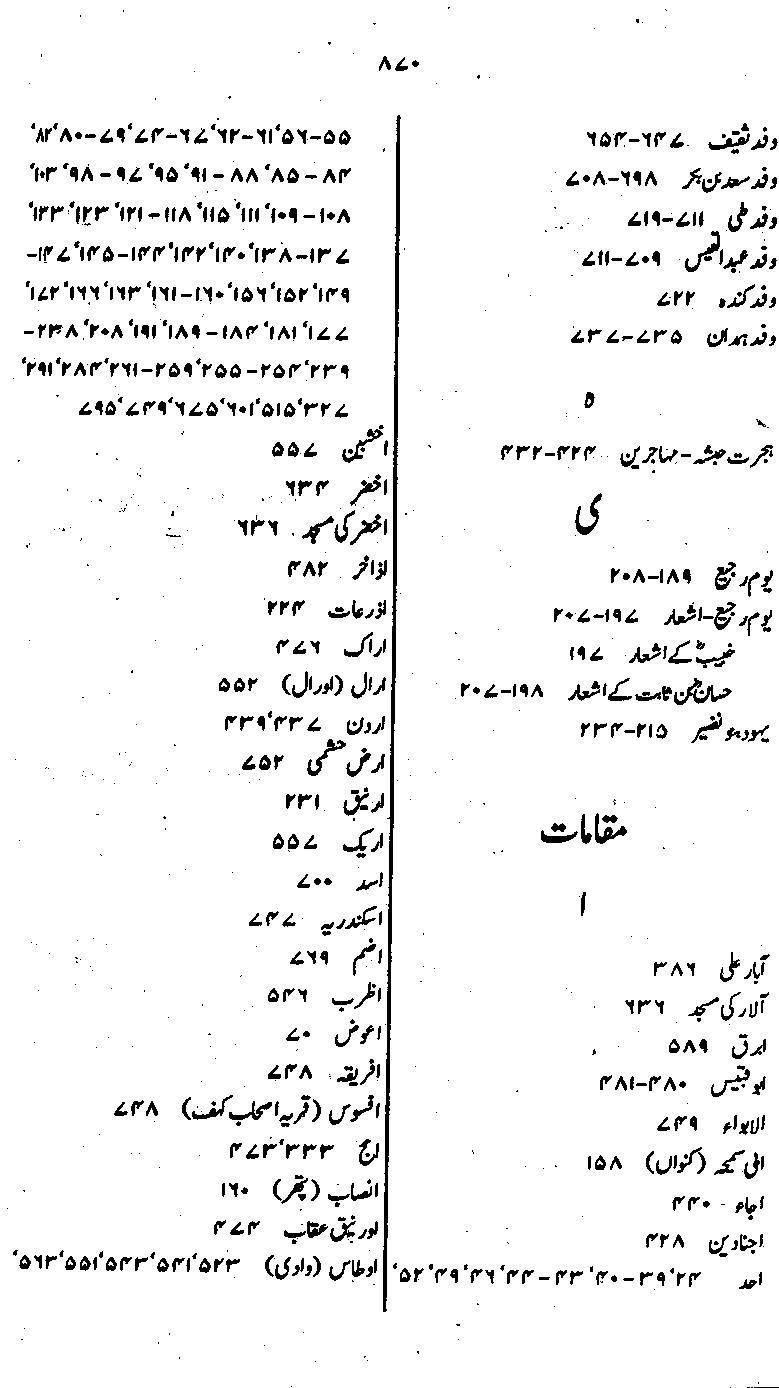 ۸۷۰
وفد ثقیف ۶۴۷-۶۵۴
وفد سعد بن بکر ۶۹۸-۷۰۸
وفد طی ۷۱۱-۷۱۹
وفد عبدالقیس ۷۰۹-۷۱۱
وفد کندہ ۷۲۲
وفد ہمدان ۷۳۵-۷۳۷
ہ
ہجرت حبشہ-مہاجرین ۴۲۴-۴۳۲
ی
یوم رجیع ۱۸۹-۲۰۸
یوم رجیع-اشعار ۱۹۷-۲۰۷
خبیبؓ کے اشعار ۱۹۷
حسانؓ بن ثابت کے اشعار ۱۹۸-۲۰۷
یہود بنو نضیر ۲۱۵-۲۳۴
مقامات
ا
آبار علی ۳۸۶
آلار کی مسجد ۶۳۶
ابرق ۵۸۹
ابو قبیس ۴۸۰-۴۸۱
الابواء ۷۴۹
ابی سمیحہ (کنواں) ۱۵۸
اجاء ۴۴۰
اجنادین ۴۲۸
احد ۲۴‘۳۹-۴۰‘۴۳-۴۴‘۴۶‘۴۹‘۵۲‘
۵۵-۵۶‘۶۱-۶۲‘۶۷-۷۴‘۷۹-۸۰‘۸۲‘
۸۴-۸۵‘۸۸-۹۱‘۹۵‘۹۷-۹۸‘۱۰۳‘
۱۰۸-۱۰۹‘۱۱۱‘۱۱۵‘۱۱۸-۱۲۱‘۱۲۳‘۱۳۳‘
۱۳۷-۱۳۸‘۱۴۰‘۱۴۲‘۱۴۴-۱۴۵‘۱۴۷-
۱۴۹‘۱۵۲‘۱۵۶‘۱۶۰-۱۶۱‘۱۶۳‘۱۶۶‘۱۷۲‘
۱۷۷‘۱۸۱‘۱۸۴-۱۸۹‘۱۹۱‘۲۰۸‘۲۳۸-
۲۳۹‘۲۵۴-۲۵۵‘۲۵۹-۲۶۱‘۲۸۴‘۲۹۱‘
۳۲۷‘۵۱۵‘۶۰۱‘۶۷۵‘۷۴۹‘۷۹۵
اخشبین ۵۵۷
اخضر ۶۳۴
اخضر کی مسجد ۶۳۶
اذاخر ۴۸۲
اذرعات ۲۲۴
اراک ۴۷۶
ارال (اورال) ۵۵۲
اردن ۴۳۷‘۴۳۹
ارض خشمی ۷۵۲
ارنیق ۲۳۱
اریک ۵۵۷
اسد ۷۰۰
اسکندریہ ۷۴۷
اضم ۷۶۹
اظرب ۵۴۶
اعوض ۷۰
افریقہ ۷۴۸
افسوس (قریہ اصحاب کہف) ۷۴۸
امج ۳۳۳‘۴۷۳
انصاب (پتھر) ۱۶۰
اور نیق عقاب ۴۷۴
اوطاس (وادی) ۵۲۳‘۵۴۱‘۵۴۳‘۵۵۱‘۵۶۳‘